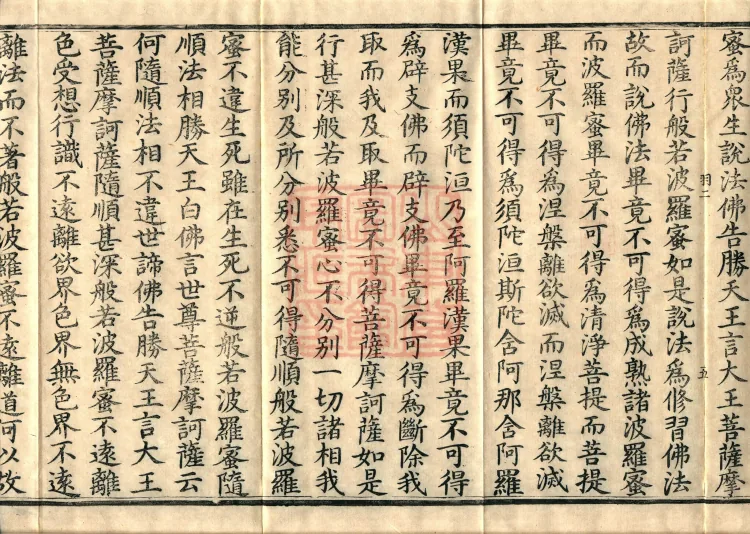 蜜爲衆生說法佛告勝天王言大王菩薩摩
羽二
五
訶薩行般若波羅蜜如是說法爲修習佛法
故而說佛法畢竟不可得爲成熟諸波羅蜜
而波羅蜜畢竟不可得爲清淨菩提而菩提
畢竟不可得爲涅槃離欲滅而涅槃離欲滅
畢竟不可得爲須陀洹斯陀含阿那含阿羅
漢果而須陀洹乃至阿羅漢果畢竟不可得
爲辟支佛而辟支佛畢竟不可得爲斷除我
取而我及取畢竟不可得菩薩摩訶薩如是
行甚深般若波羅蜜心不分別一切諸相我
能分別及所分別悉不可得隨順般若波羅
蜜不違生死雖在生死不逆般若波羅蜜隨
順法相勝天王白佛言世尊菩薩摩訶薩云
何隨順法相不違世諦佛告勝天王言大王
菩薩摩訶薩隨順甚深般若波羅蜜不遠離
色受想行識不遠離欲界色界無色界不遠
離法而不著般若波羅蜜不遠離道何以故